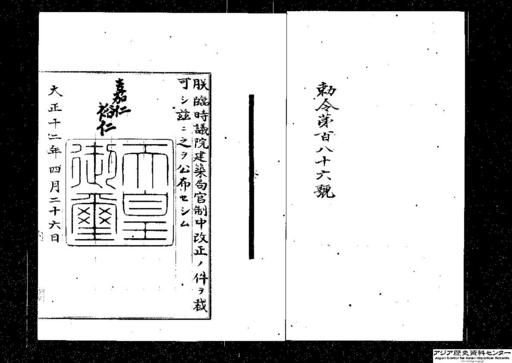 勅令第百八十六號
朕臨時議院建築局官制中改正ノ件ヲ裁
可シ茲ニ之ヲ公布セシム
嘉仁
裕仁
天皇
御璽
大正十二年四月二十六日
アジア歴史資料センター
Japan Center for Asian Historical Records